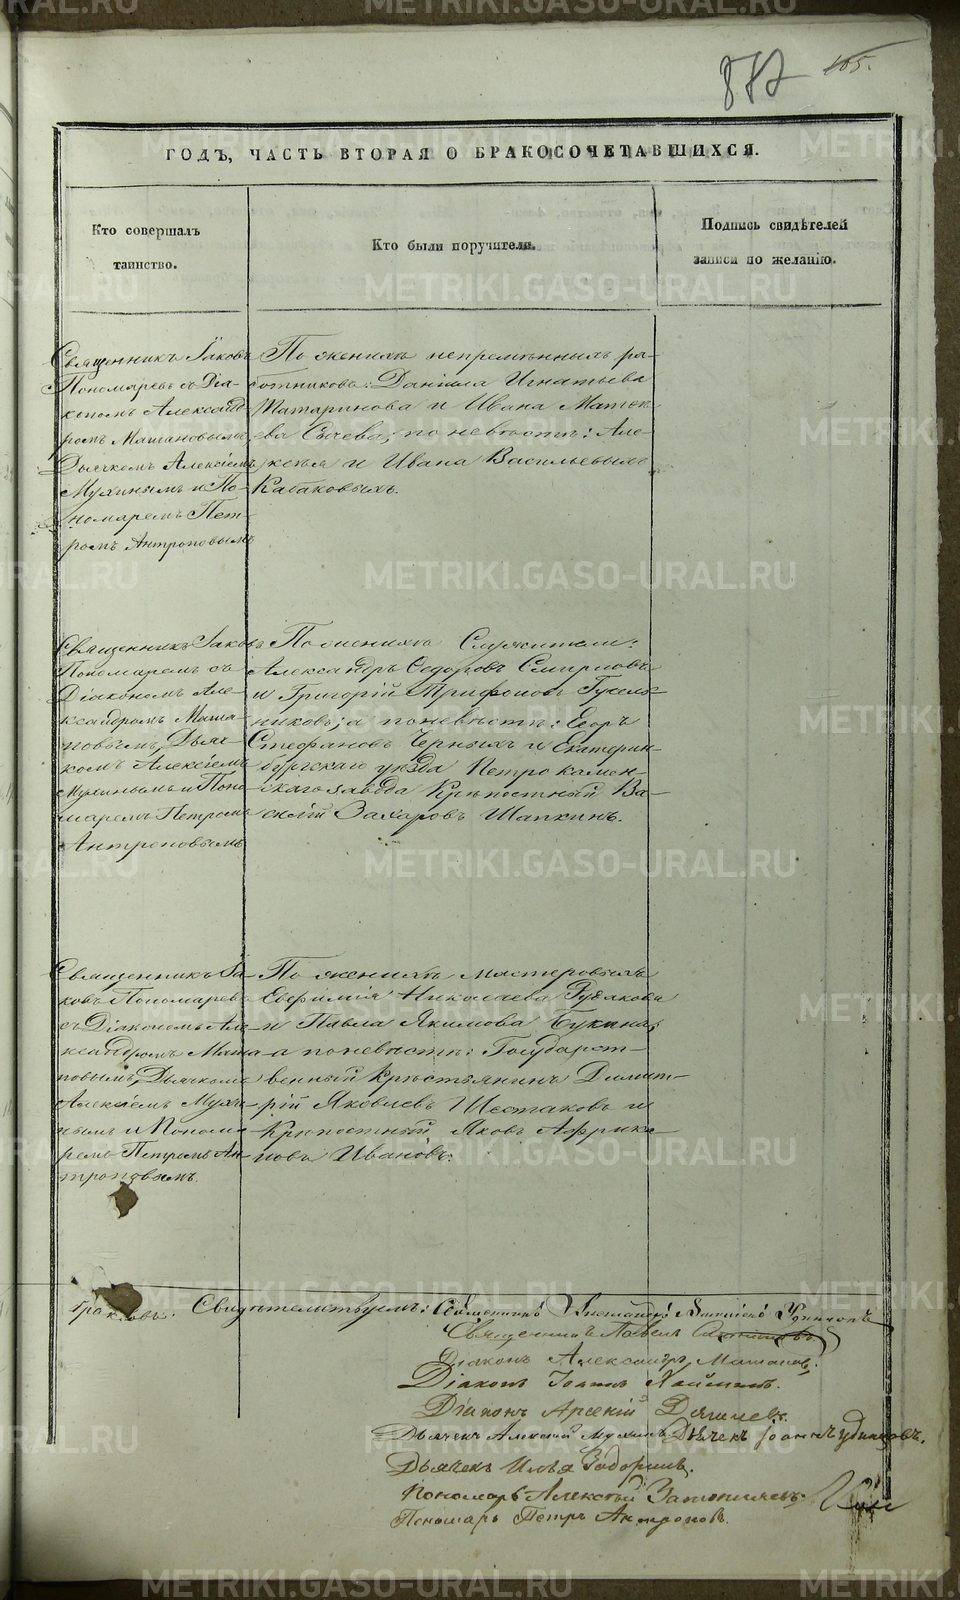 METRIKI.GASO-URAL.RU
165.
ГОДЪ, ЧАСТЬ ВТОРАЯ О БРАКОСОЧЕТАВШИХСЯ.
Кто совершалъ таинство.
Кто были поручители.
Подпись свидѣтелей записи по желанію.
Священникъ Іаковъ
Пономаревъ съ Діа-
кономъ Александ
ромъ Машановымъ,
Дьячкомъ Алексіемъ
Мухинымъ и По-
номаремъ Пет-
ромъ Антроповымъ
По женихѣ непремѣнныхъ ра-
ботниковъ: Даніила Игнатьева
Татаринова и Ивана Матвѣ-
ева Сычева; по невѣстѣ: Але-
ксѣя и Ивана Васильевыхъ
Кабаковыхъ.
Священникъ Іаковъ
Пономаревъ съ
Діакономъ Але-
ксандромъ Маша-
новымъ, Дьяч-
комъ Алексіемъ
Мухинымъ и Поно-
маремъ Петромъ
Антроповымъ
По женихѣ Служители:
Александръ Ѳедоровъ Смирновъ
и Григорій Трифоновъ Гусель
никовъ; а по невѣстѣ: Егоръ
Стефановъ Черныхъ и Екатерин-
бургскаго уѣзда Петрокамен-
скаго завода Крѣпостный Ва-
силій Захаровъ Шапкинъ.
Священникъ Іа-
ковъ Пономаревъ
съ Діакономъ Але-
ксандромъ Маша-
новымъ, Дьячкомъ
Алексіемъ Мухи-
нымъ и Понома
ремъ Петромъ Ан-
троповымъ.
По женихѣ мастеровыхъ
Евфимія Николаева Рудакова
и Павла Якимова Букина;
а по невѣстѣ: Государст-
венный Крестьянинъ Димит-
рій Яковлевъ Шестаковъ и
Крѣпостный Яковъ Африка-
новъ Ивановъ.
браковъ. Свидѣтельствуемъ: Священникъ
Священникъ Павелъ
Діаконъ Александръ Машановъ.
Діаконъ Іоаннъ
Діаконъ Арсеній
Дьячекъ Алексій Мухинъ. Дьячекъ Іоаннъ Удинцовъ.
Дьячекъ Илья
Пономарь Алексѣй
Пономарь Петръ Антроповъ.